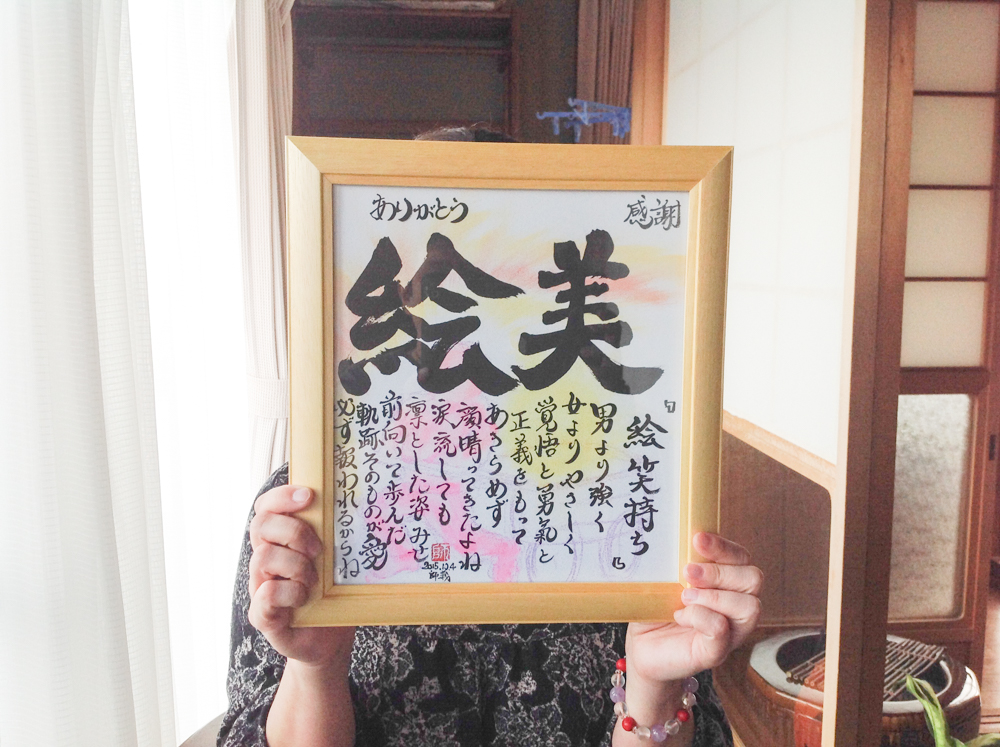 ありがとう
感謝
絵美
「絵笑持ち」
男より強く
女よりやさしく
覚悟と勇氣と
正義をもって
あきらめず
顔晴ってきたよね
涙流しても
凛とした姿みせ
前向いて歩んだ
軌跡そのものが愛
必ず報われるからね
師
2015.12.4